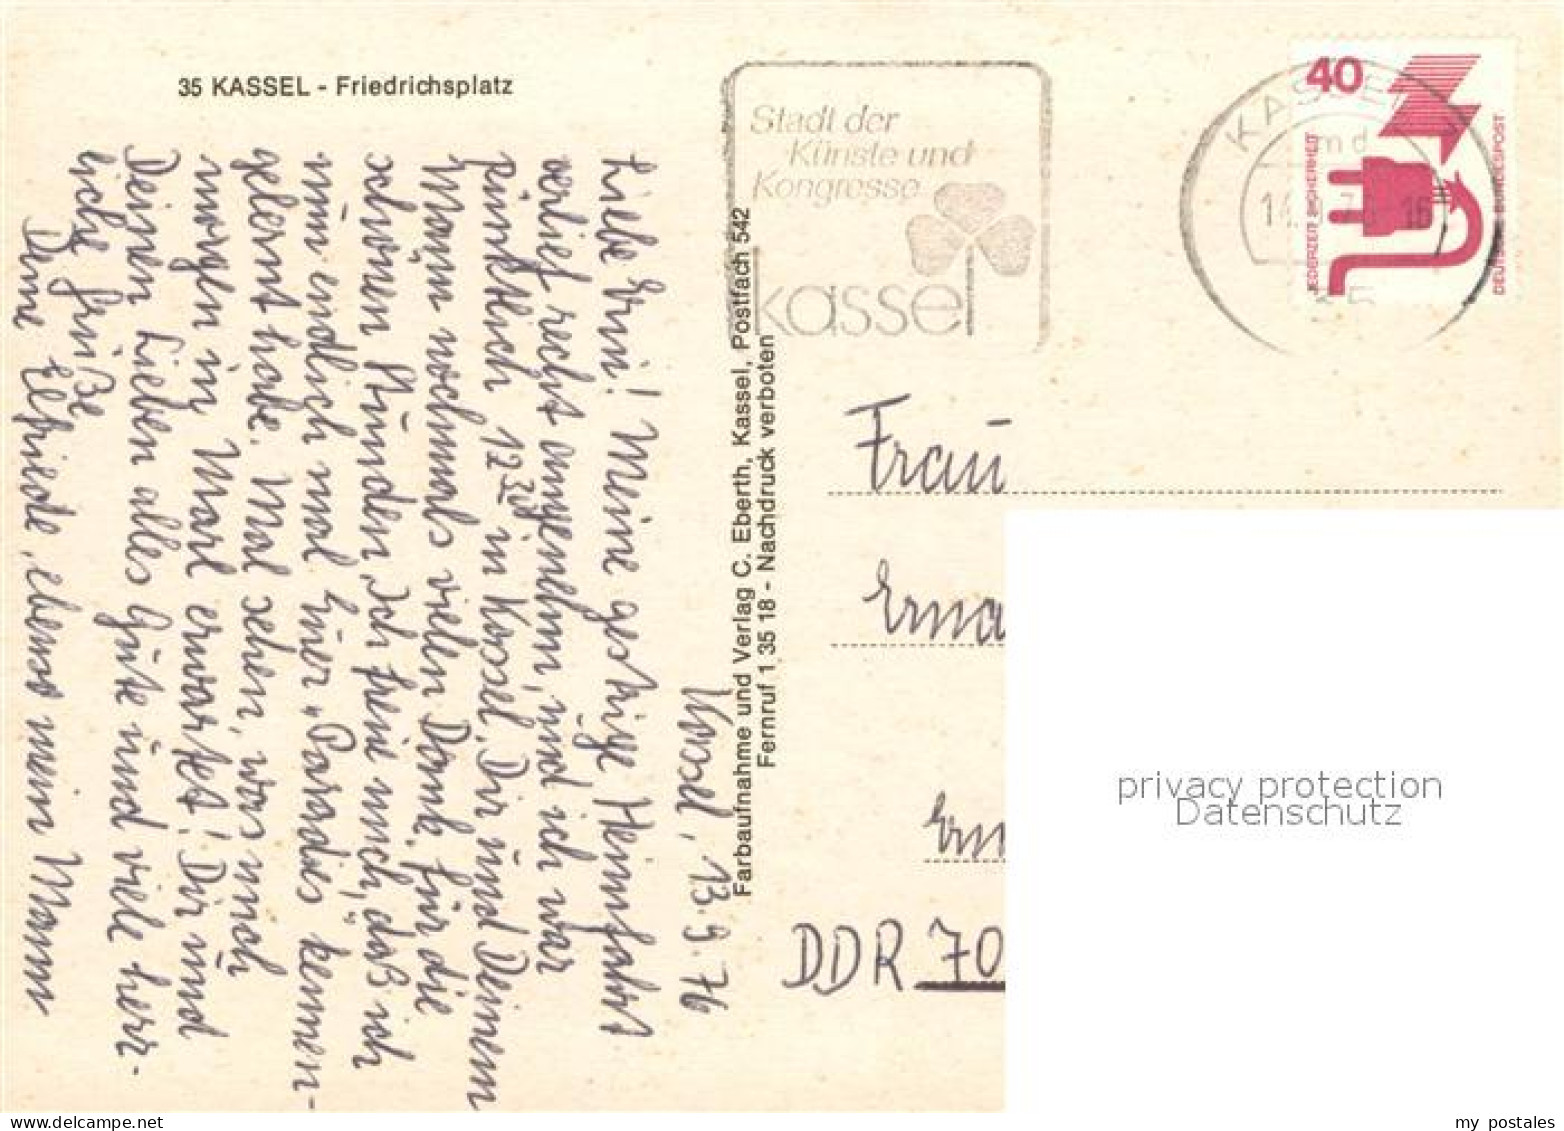 35 KASSEL - Friedrichsplatz
Kassel, 13.9.76
Liebe Erni! Meine gestrige Heimfahrt
verlief recht angenehm, und ich war
pünktlich 12³⁰ in Kassel. Dir und Deinem
Mann nochmals vielen Dank für die
schönen Stunden. Ich freue mich, daß ich
nun endlich mal Euer „Paradies" kennen-
gelernt habe. Mal sehen, was mich
morgen in Marl erwartet! Dir und
Deinen Lieben alles Gute und viele herz-
liche Grüße
Deine Elfriede, ebenso mein Mann
Farbaufnahme und Verlag C. Eberth, Kassel, Postfach 542
Fernruf 1 35 18 - Nachdruck verboten
Stadt der
Künste und
Kongresse
kassel
KASSEL
md
16
35
40
JEDERZEIT SICHERHEIT
DEUTSCHE BUNDESPOST
Frau
Erna
DDR 70
privacy protection
Datenschutz
www.delcampe.net
my_postales